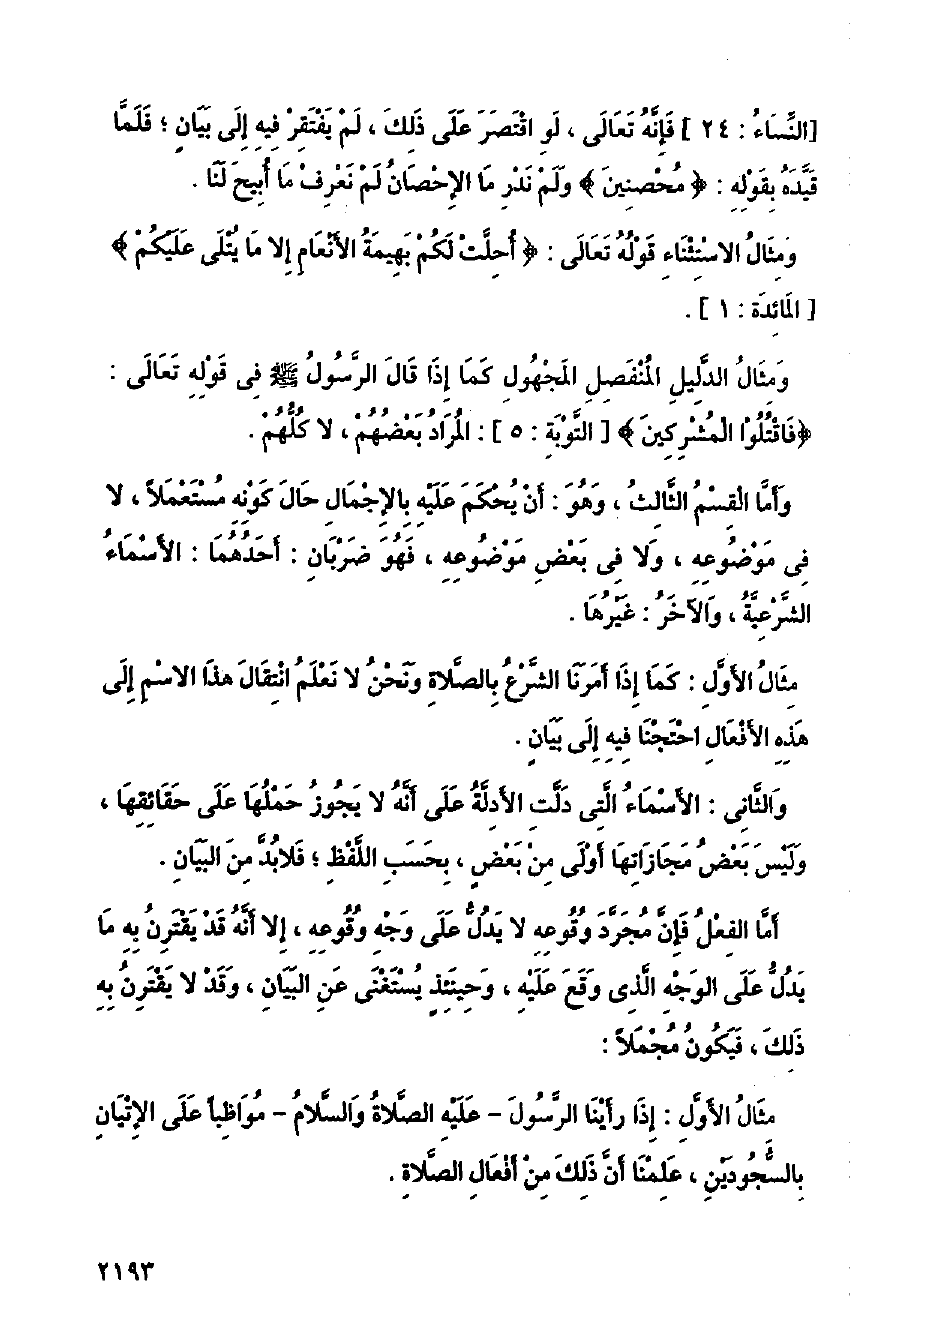 [النِّسَاءُ : ٢٤ ] فَإِنَّهُ تَعَالَى ، لَوِ اقْتَصَرَ عَلَى ذَلِكَ ، لَمْ يَفْتَقِرْ فِيهِ إِلَى بَيَانٍ ؛ فَلَمَّا
قَيَّدَهُ بِقَوْلِهِ : ﴿ مُحْصِنِينَ ﴾ وَلَمْ نَدْرِ مَا الإِحْصَانُ لَمْ نَعْرِفْ مَا أُبِيحَ لَنَا .
وَمِثَالُ الاسْتِثْنَاءِ قَوْلُهُ تَعَالَى : ﴿ أُحِلَّتْ لَكُمْ بَهِيمَةُ الأَنْعَامِ إِلا مَا يُتْلَى عَلَيْكُمْ ﴾
[ المَائِدَةِ : ١ ] .
وَمِثَالُ الدَّلِيلِ المُنْفَصِلِ المَجْهُولِ كَمَا إِذَا قَالَ الرَّسُولُ ﷺ فِى قَوْلِهِ تَعَالَى :
﴿فَاقْتُلُوا الْمُشْرِكِينَ ﴾ [ التَّوْبَةِ : ٥ ] : المُرَادُ بَعْضُهُمْ ، لا كُلُّهُمْ .
وَأَمَّا الْقِسْمُ الثَّالِثُ ، وَهُوَ : أَنْ يُحْكَمَ عَلَيْهِ بِالإِجْمَالِ حَالَ كَوْنِهِ مُسْتَعْمَلاً ، لا
فِى مَوْضُوعِهِ ، وَلا فِى بَعْضِ مَوْضُوعِهِ ، فَهُوَ ضَرْبَانِ : أَحَدُهُمَا : الأَسْمَاءُ
الشَّرْعِيَّةُ ، وَالآخَرُ : غَيْرُهَا .
مِثَالُ الأَوَّلِ : كَمَا إِذَا أَمَرَنَا الشَّرْعُ بِالصَّلاةِ وَنَحْنُ لا نَعْلَمُ انْتِقَالَ هذَا الاسْمِ إِلَى
هَذِهِ الأَفْعَالِ احْتَجْنَا فِيهِ إِلَى بَيَانٍ .
وَالثَّانِى : الأَسْمَاءُ الَّتِى دَلَّتِ الأَدِلَّةُ عَلَى أَنَّهُ لا يَجُوزُ حَمْلُهَا عَلَى حَقَائِقِهَا ،
وَلَيْسَ بَعْضُ مَجَازَاتِهَا أَوْلَى مِنْ بَعْضٍ ، بِحَسَبِ اللَّفْظِ ؛ فَلابُدَّ مِنَ البَيَانِ .
أَمَّا الفِعْلُ فَإِنَّ مُجَرَّدَ وُقُوعِهِ لا يَدُلُّ عَلَى وَجْهِ وُقُوعِهِ ، إِلا أَنَّهُ قَدْ يَقْتَرِنُ بِهِ مَا
يَدُلُّ عَلَى الوَجْهِ الَّذِى وَقَعَ عَلَيْهِ ، وَحِينَئِذٍ يُسْتَغْنَى عَنِ البَيَانِ ، وَقَدْ لا يَقْتَرِنُ بِهِ
ذَلِكَ ، فَيَكُونُ مُجْمَلاً :
مِثَالُ الأَوَّلِ : إِذَا رَأَيْنَا الرَّسُولَ - عَلَيْهِ الصَّلاةُ وَالسَّلامُ - مُوَاظِباً عَلَى الإِتْيَانِ
بِالسُّجُودَيْنِ ، عَلِمْنَا أَنَّ ذَلِكَ مِنْ أَفْعَالِ الصَّلاةِ .
٢١٩٣